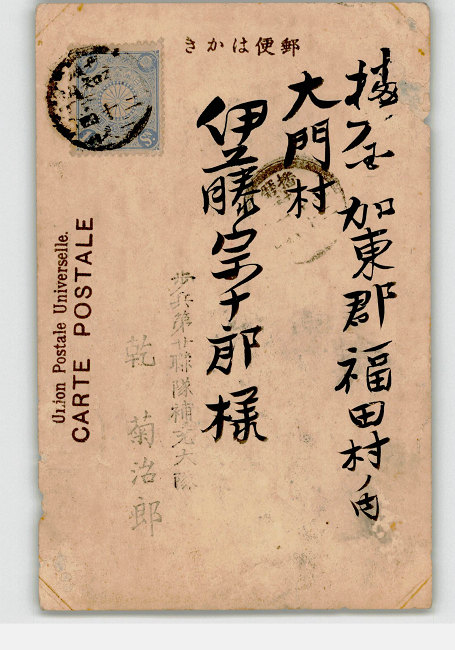 郵便はかき
加東郡福田村ノ内
大門村
伊藤宗十郎様
歩兵第廿聯隊補充大隊
乾 菊治郎
Union Postale Universelle.
CARTE POSTALE